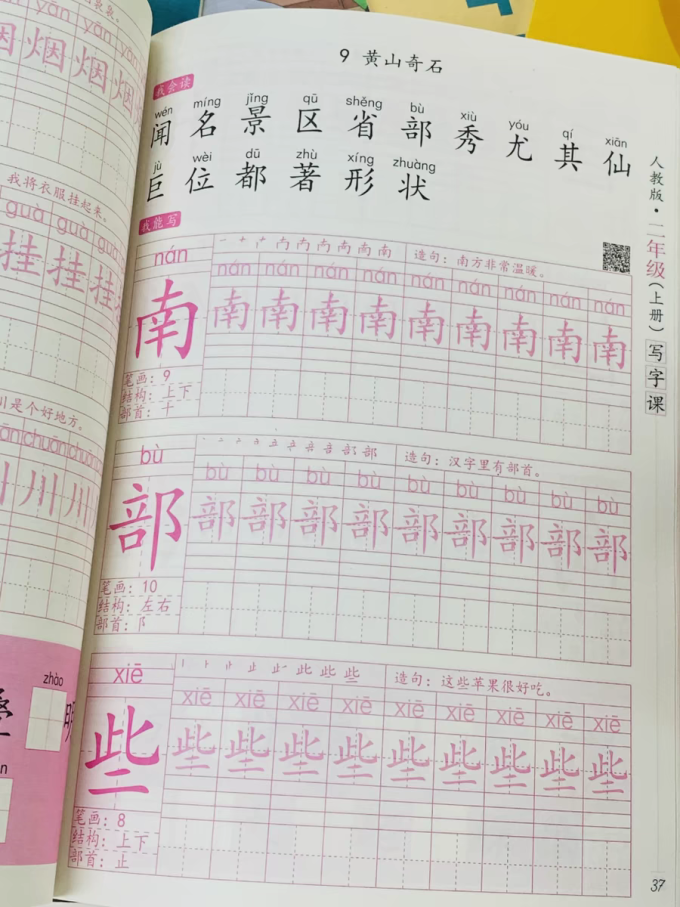 yān yān yān yān
烟 烟 烟 烟
我将衣服挂起来。
guà guà guà guà
挂 挂 挂 挂
川是个好地方。
chuān chuān chuān
川 川 川
zhào
9 黄山奇石
我会读
wén míng jǐng qū shěng bù xiù yóu qí xiān
闻 名 景 区 省 部 秀 尤 其 仙
jù wèi dū zhù xíng zhuàng
巨 位 都 著 形 状
我能写
nán
造句：南方非常温暖。
nán nán nán nán nán nán nán nán nán
南
南 南 南 南 南 南 南 南 南
笔画：9
结构：上下
部首：十
bù
造句：汉字里有部首。
bù bù bù bù bù bù bù bù bù
部
部 部 部 部 部 部 部 部 部
笔画：10
结构：左右
部首：阝
xiē
造句：这些苹果很好吃。
xiē xiē xiē xiē xiē xiē xiē xiē xiē
些
些 些 些 些 些 些 些 些 些
笔画：8
结构：上下
部首：止
人教版·二年级（上册）写字课
37